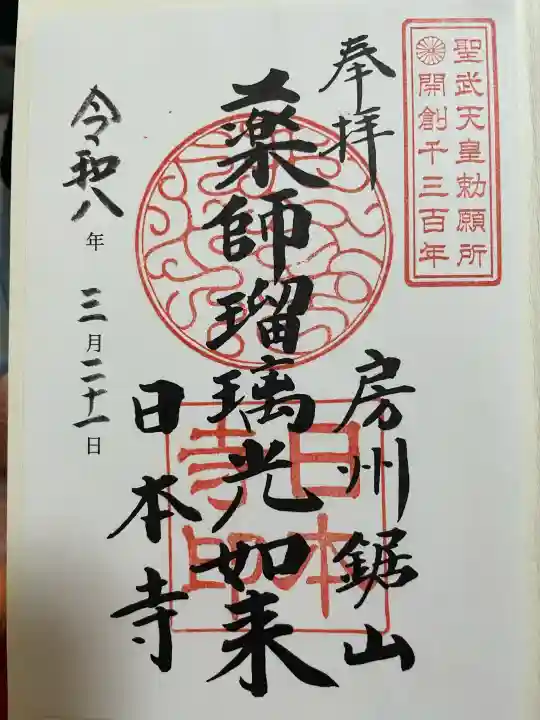 聖武天皇勅願所
開創千三百年
奉拝
房州鋸山
薬師瑠璃光如来
日本寺
日本寺印
令和八年三月二十一日